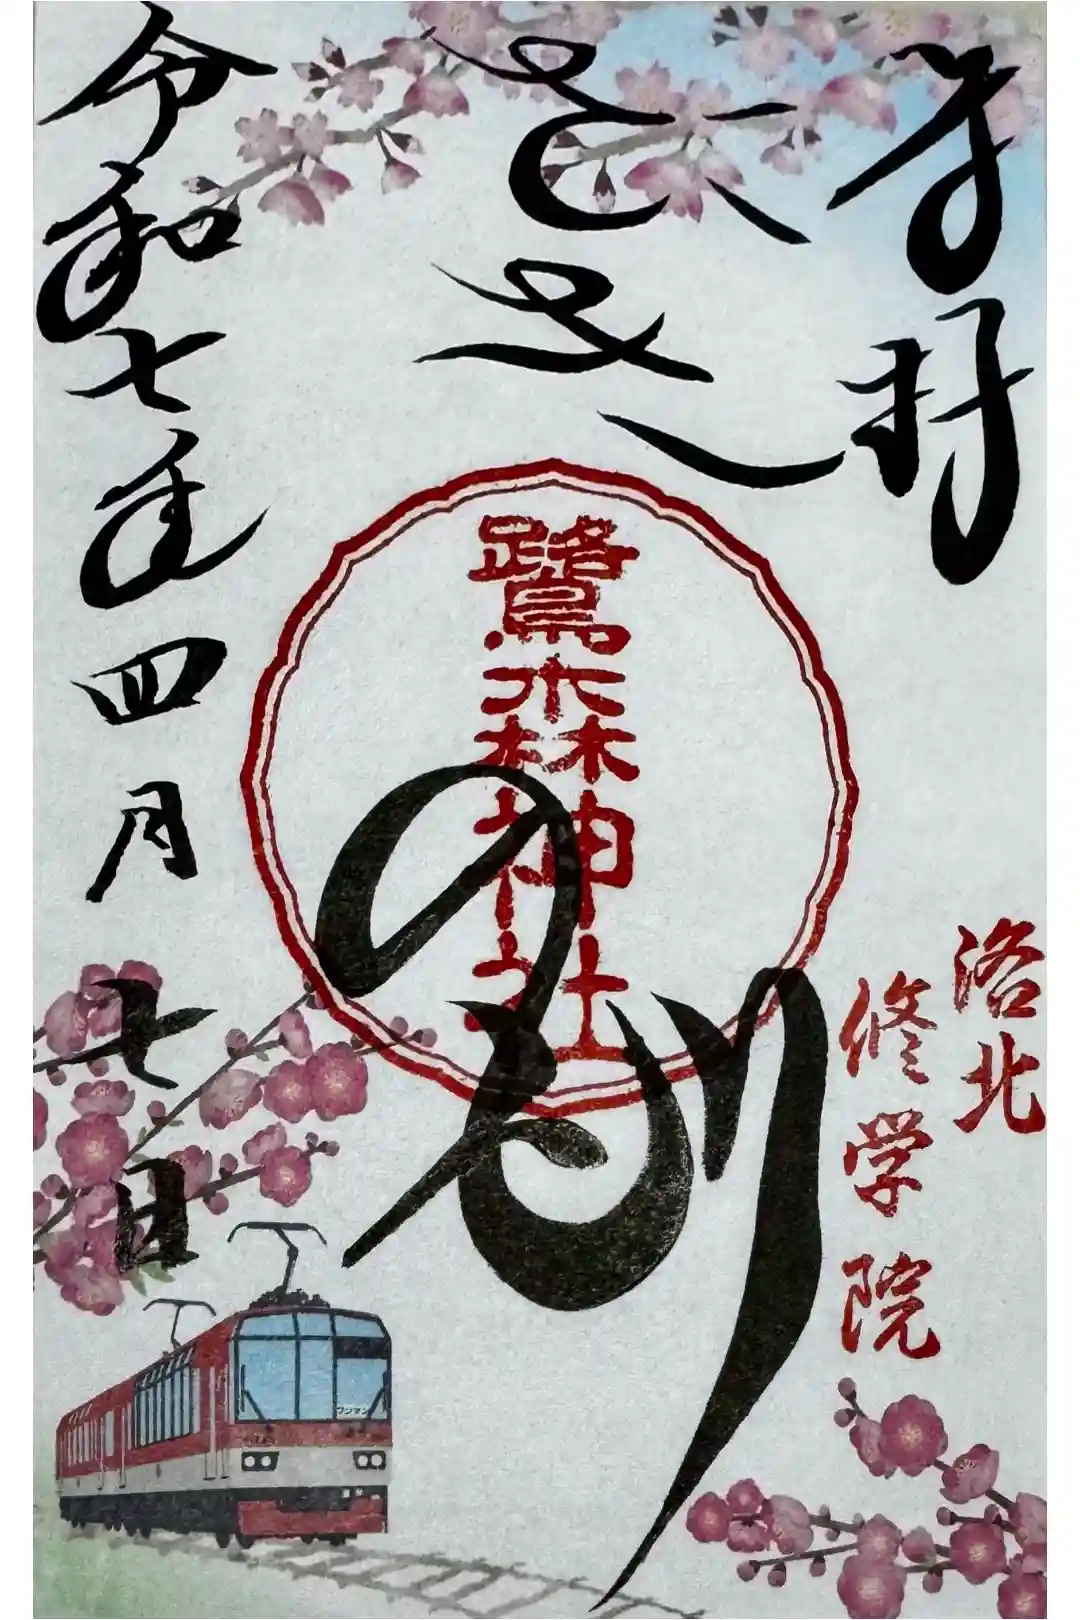 奉拝
洛北
修学院
さぎのもり
鷺森神社
令和七年四月七日
ワンマン